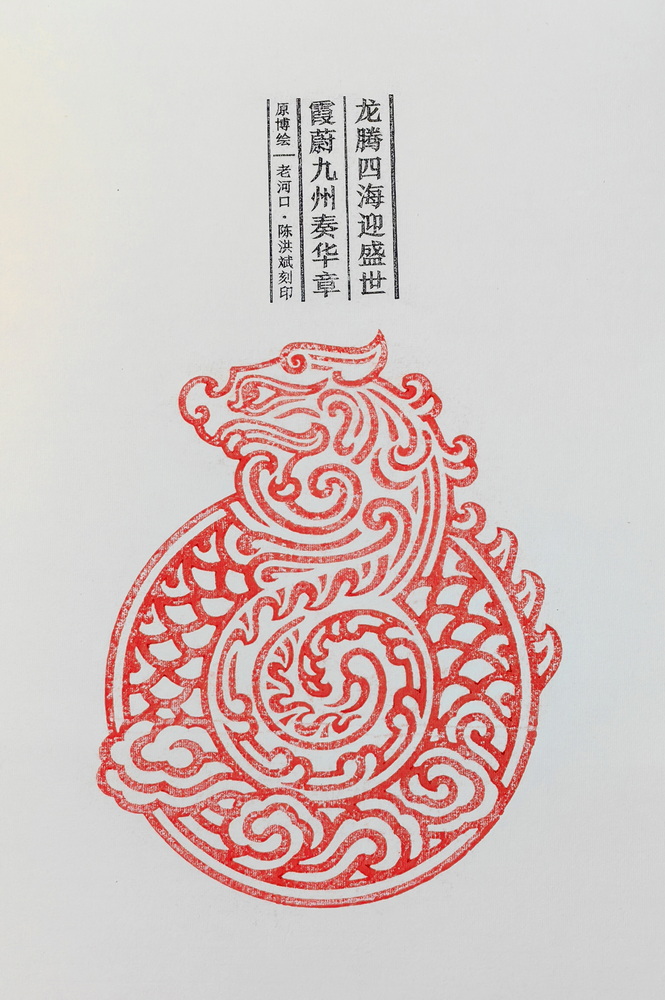 龙腾四海迎盛世
霞蔚九州奏华章
原博绘—老河口·陈洪斌刻印